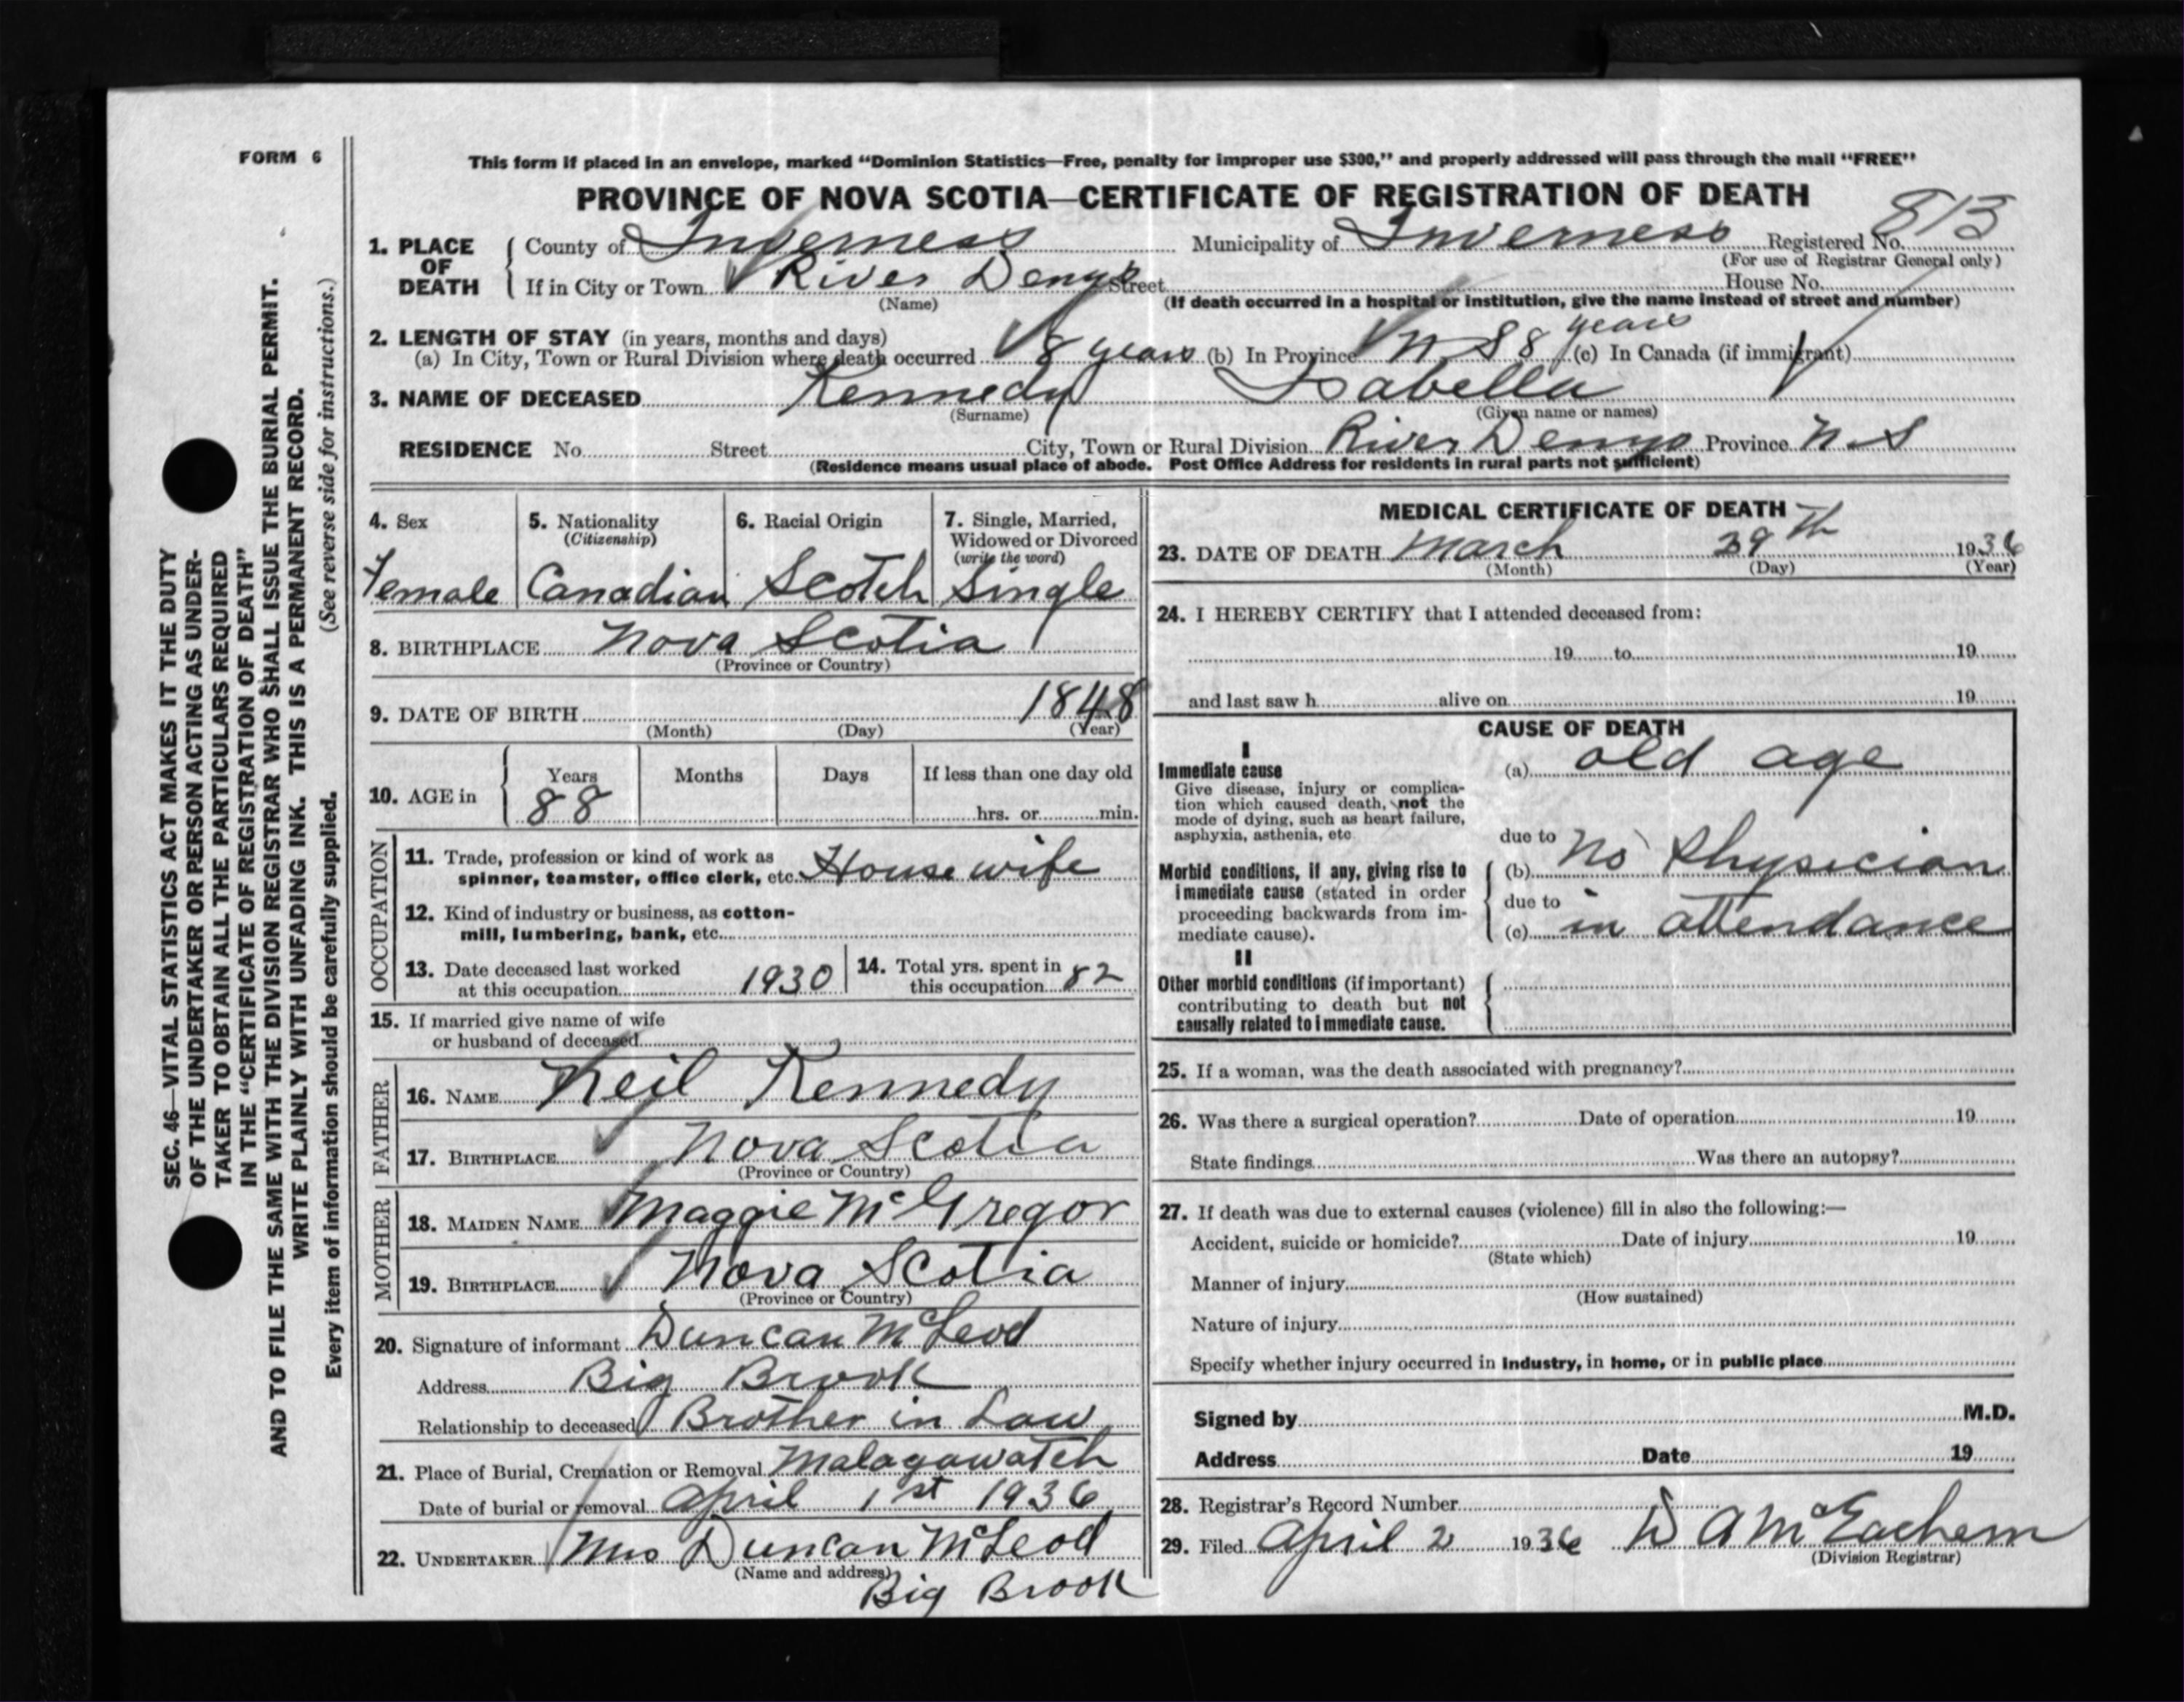 FORM 6
This form if placed in an envelope, marked "Dominion Statistics—Free, penalty for improper use $300," and properly addressed will pass through the mail "FREE"
PROVINCE OF NOVA SCOTIA—CERTIFICATE OF REGISTRATION OF DEATH
1. PLACE OF DEATH { County of Inverness Municipality of Inverness Registered No. 813
(For use of Registrar General only)
If in City or Town River Denys Street House No.
(Name) (If death occurred in a hospital or institution, give the name instead of street and number)
2. LENGTH OF STAY (in years, months and days)
(a) In City, Town or Rural Division where death occurred 8 years (b) In Province N S 8 years (c) In Canada (if immigrant)
3. NAME OF DECEASED Kennedy Isabella
(Surname) (Given name or names)
RESIDENCE No. Street City, Town or Rural Division River Denys Province N S
(Residence means usual place of abode. Post Office Address for residents in rural parts not sufficient)
4. Sex
Female
5. Nationality
(Citizenship)
Canadian
6. Racial Origin
Scotch
7. Single, Married,
Widowed or Divorced
(write the word)
Single
8. BIRTHPLACE Nova Scotia
(Province or Country)
9. DATE OF BIRTH 1848
(Month) (Day) (Year)
10. AGE in { Years Months Days If less than one day old
88 hrs. or min.
OCCUPATION
11. Trade, profession or kind of work as
spinner, teamster, office clerk, etc. House wife
12. Kind of industry or business, as cotton-
mill, lumbering, bank, etc.
13. Date deceased last worked
at this occupation 1930
14. Total yrs. spent in
this occupation 82
15. If married give name of wife
or husband of deceased
FATHER
16. NAME Neil Kennedy
17. BIRTHPLACE Nova Scotia
(Province or Country)
MOTHER
18. MAIDEN NAME Maggie McGregor
19. BIRTHPLACE Nova Scotia
(Province or Country)
20. Signature of informant Duncan McLeod
Address Big Brook
Relationship to deceased Brother in Law
21. Place of Burial, Cremation or Removal Malagawatch
Date of burial or removal April 1st 1936
22. UNDERTAKER Mrs Duncan McLeod
(Name and address)
Big Brook
MEDICAL CERTIFICATE OF DEATH
23. DATE OF DEATH March 29th 1936
(Month) (Day) (Year)
24. I HEREBY CERTIFY that I attended deceased from:
19 to 19
and last saw h alive on 19
CAUSE OF DEATH
I
Immediate cause
Give disease, injury or complica-
tion which caused death, not the
mode of dying, such as heart failure,
asphyxia, asthenia, etc
(a) old age
due to
Morbid conditions, if any, giving rise to
immediate cause (stated in order
proceeding backwards from im-
mediate cause).
(b) No Physician
due to
(c) in attendance
II
Other morbid conditions (if important)
contributing to death but not
causally related to immediate cause.
25. If a woman, was the death associated with pregnancy?
26. Was there a surgical operation? Date of operation 19
State findings Was there an autopsy?
27. If death was due to external causes (violence) fill in also the following:—
Accident, suicide or homicide? Date of injury 19
(State which)
Manner of injury
(How sustained)
Nature of injury
Specify whether injury occurred in industry, in home, or in public place
Signed by M.D.
Address Date 19
28. Registrar's Record Number
29. Filed April 2 1936 D A McEachern
(Division Registrar)
SEC. 46—VITAL STATISTICS ACT MAKES IT THE DUTY
OF THE UNDERTAKER OR PERSON ACTING AS UNDER-
TAKER TO OBTAIN ALL THE PARTICULARS REQUIRED
IN THE "CERTIFICATE OF REGISTRATION OF DEATH"
AND TO FILE THE SAME WITH THE DIVISION REGISTRAR WHO SHALL ISSUE THE BURIAL PERMIT.
WRITE PLAINLY WITH UNFADING INK. THIS IS A PERMANENT RECORD.
Every item of information should be carefully supplied. (See reverse side for instructions.)